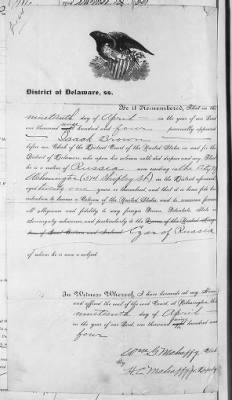 District of Delaware, ss.
Be it Remembered, That on the
nineteenth day of April in the year of our Lord
one thousand nine hundred and four personally appeared
Isaak Brown
before me Clerk of the District Court of the United States in and for the
District of Delaware who upon his solemn oath did depose and say That
he is a native of Russia now residing at the City of
Wilmington (319 Shipley St) in the District aforesaid
aged twenty one years or thereabout, and that it is bona fide his
intention to become a Citizen of the United States, and to renounce forever
all allegiance and fidelity to any foreign Prince, Potentate, State or
Sovereignty whatever, and particularly to the
Czar of Russia
of whom he is now a subject
In Witness Whereof, I have hereunto set my Hand
and affixed the seal of the said Court at Wilmington, this
nineteenth day of April
in the year of our Lord, one thousand nine hundred and
four
Clerk
By
Deputy